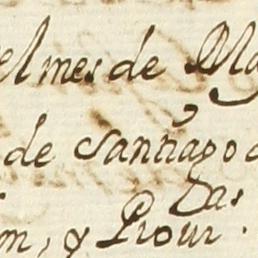 el mes de Ma
de Santiago d
as
n, y Prour.